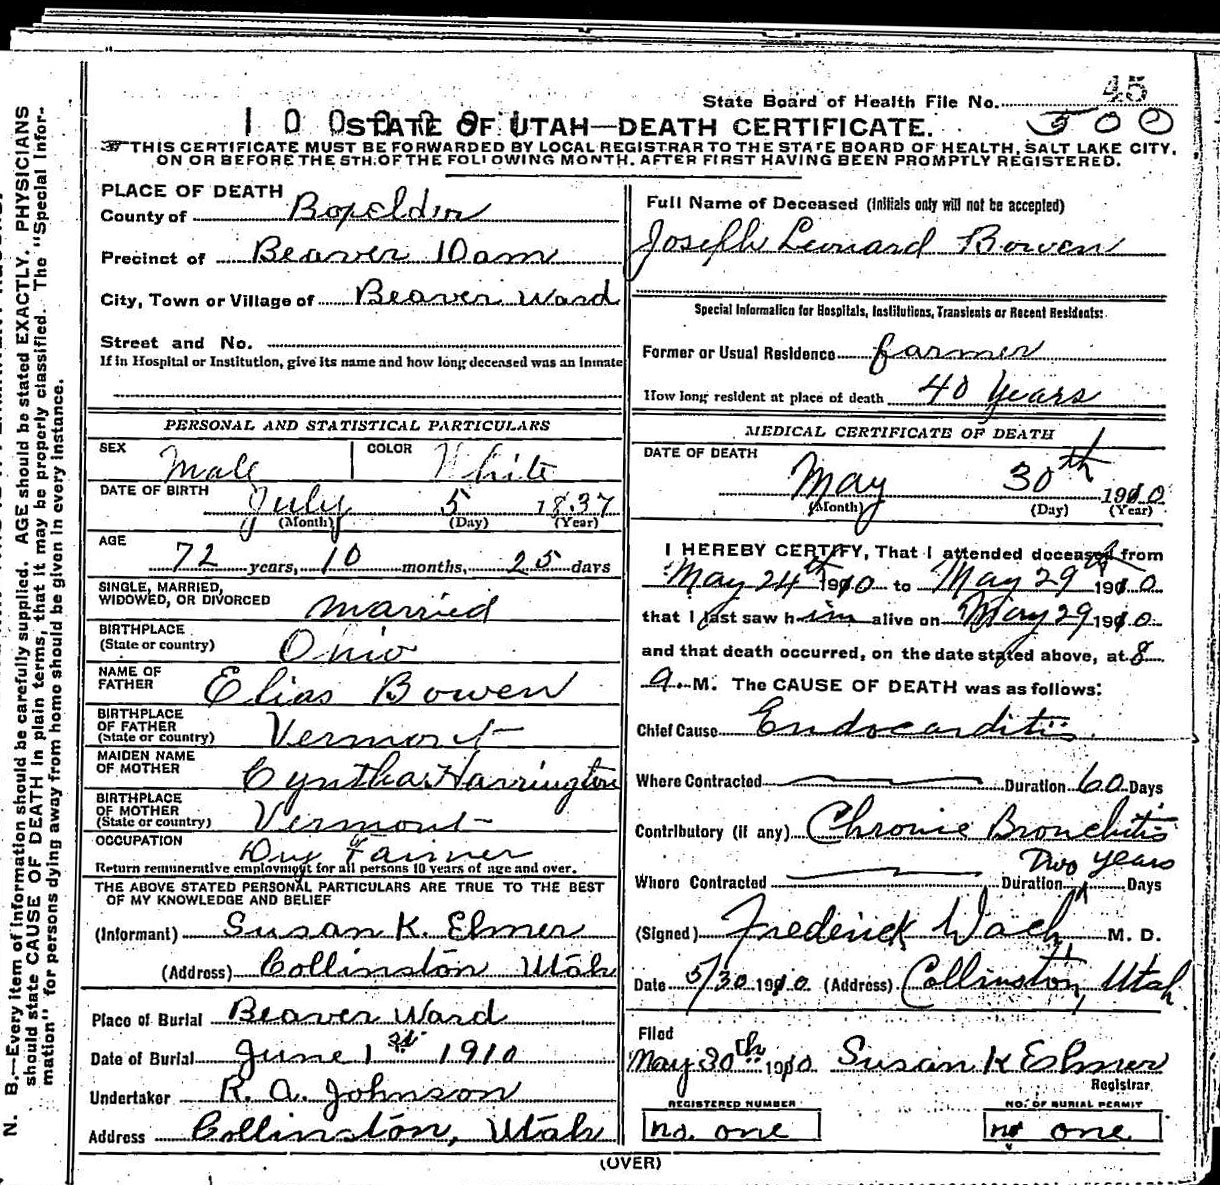 45
State Board of Health File No.
500
STATE OF UTAH—DEATH CERTIFICATE.
THIS CERTIFICATE MUST BE FORWARDED BY LOCAL REGISTRAR TO THE STATE BOARD OF HEALTH, SALT LAKE CITY,
ON OR BEFORE THE 5TH OF THE FOLLOWING MONTH, AFTER FIRST HAVING BEEN PROMPTLY REGISTERED.
N. B.—Every item of information should be carefully supplied. AGE should be stated EXACTLY. PHYSICIANS
should state CAUSE OF DEATH in plain terms, that it may be properly classified. The "Special Infor-
mation" for persons dying away from home should be given in every instance.
PLACE OF DEATH
County of Boxelder
Precinct of Beaver Dam
City, Town or Village of Beaver Ward
Street and No.
If in Hospital or Institution, give its name and how long deceased was an inmate
PERSONAL AND STATISTICAL PARTICULARS
SEX Male COLOR White
DATE OF BIRTH July 5 1837
(Month) (Day) (Year)
AGE
72 years, 10 months, 25 days
SINGLE, MARRIED,
WIDOWED, OR DIVORCED married
BIRTHPLACE
(State or country) Ohio
NAME OF
FATHER Elias Bowen
BIRTHPLACE
OF FATHER
(State or country) Vermont
MAIDEN NAME
OF MOTHER Cyntha Harrington
BIRTHPLACE
OF MOTHER
(State or country) Vermont
OCCUPATION
Dry Farmer
Return remunerative employment for all persons 10 years of age and over.
THE ABOVE STATED PERSONAL PARTICULARS ARE TRUE TO THE BEST
OF MY KNOWLEDGE AND BELIEF
(Informant) Susan K. Elmer
(Address) Collinston Utah
Place of Burial Beaver Ward
Date of Burial June 1st 1910
Undertaker R. A. Johnson
Address Collinston, Utah
Full Name of Deceased (Initials only will not be accepted)
Joseph Leonard Bowen
Special Information for Hospitals, Institutions, Transients or Recent Residents:
Former or Usual Residence farmer
How long resident at place of death 40 years
MEDICAL CERTIFICATE OF DEATH
DATE OF DEATH
May 30th 1910
(Month) (Day) (Year)
I HEREBY CERTIFY, That I attended deceased from
May 24th 1910 to May 29th 1910
that I last saw him alive on May 29 1910
and that death occurred, on the date stated above, at 8
a. M. The CAUSE OF DEATH was as follows:
Chief Cause Endocarditis
Where Contracted Duration 60 Days
Contributory (if any) Chronic Bronchitis
Two years
Where Contracted Duration Days
(Signed) Frederick Wach, M. D.
Date 5/30 1910 (Address) Collinston, Utah.
Filed
May 30th 1910 Susan K Elmer
Registrar.
REGISTERED NUMBER NO. OF BURIAL PERMIT
no. one no one
(OVER)